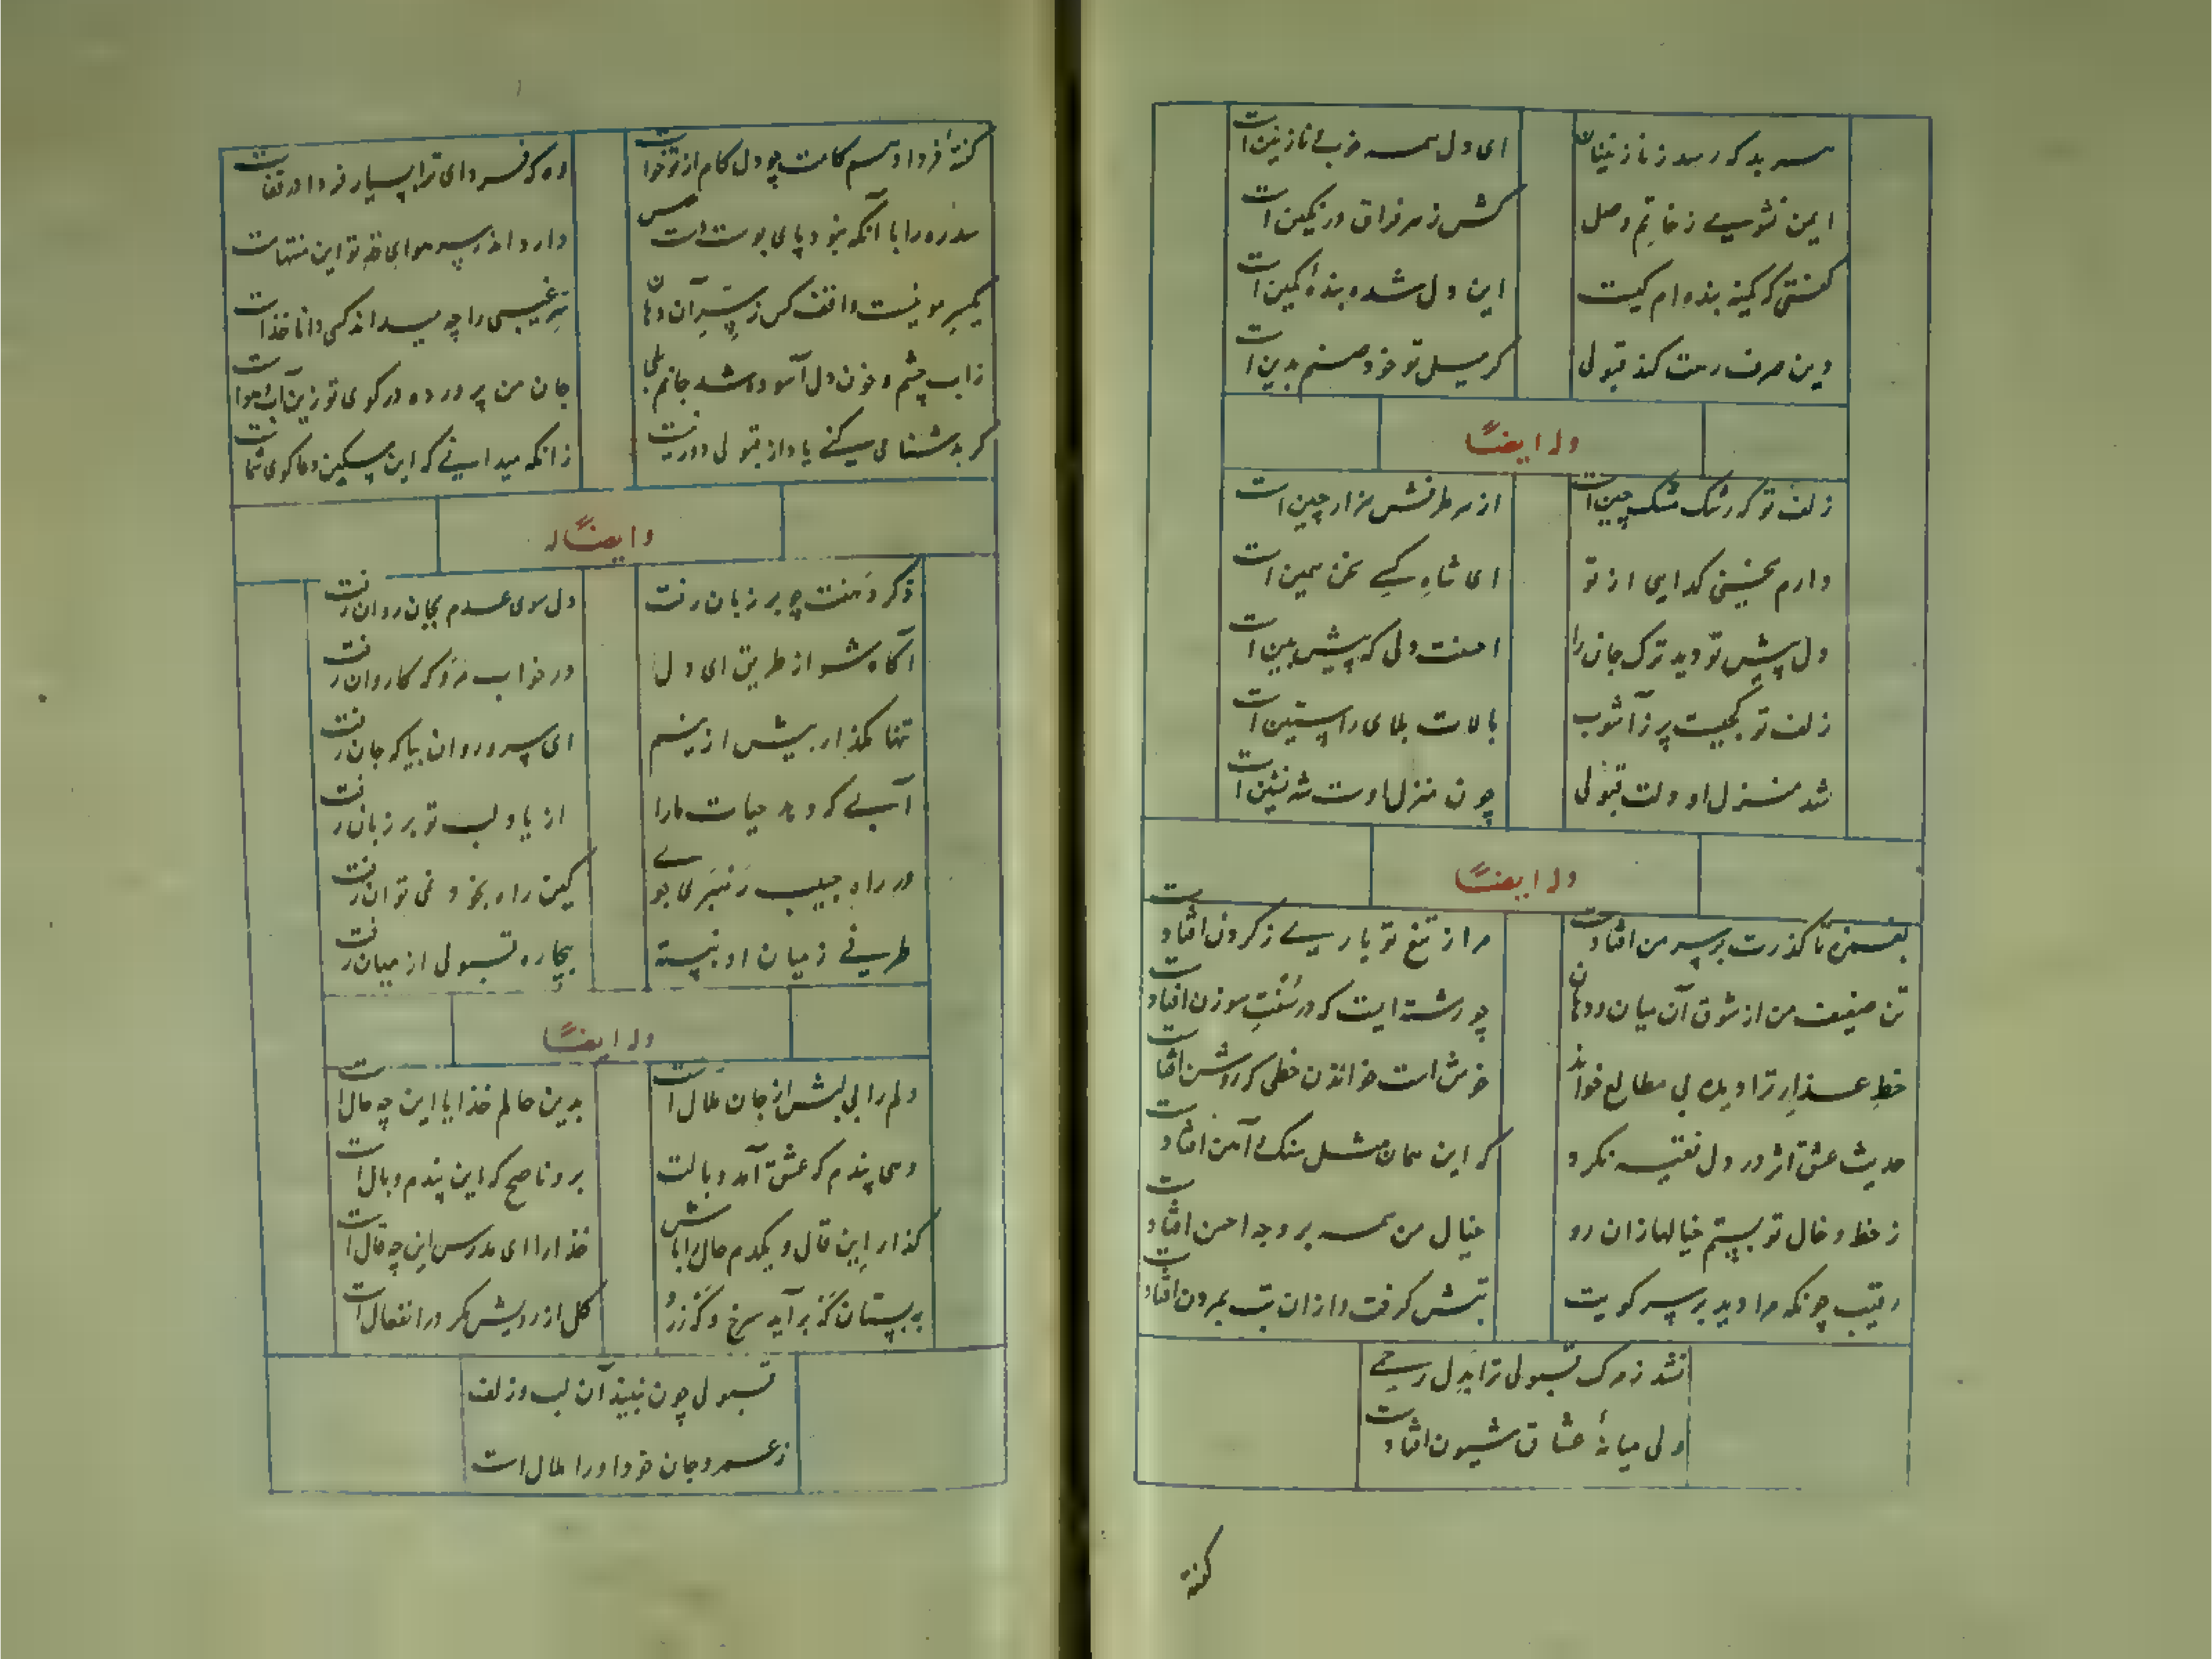 هر بد که رسد ز نازنینان
ای دل همه خوب نازنین است
ایمن نشوی ز خاتم وصل
کش زهر فراق در نگین است
گفتی که کمینه بنده ام کیست
این دل شده بندهٔ کمین است
دین صرف رهت کند قبولی
گر میل تو خود صنم بدین است
وله ایضاً
زلف تو که رشک مشک چین است
از هر طرفش هزار چین است
دارم بخشی گدایی از تو
ای شاه سخن همین است
دل پیش تو دید ترک جان را
احسنت دلی که پیش بین است
زلف تو کجیست پر ز آشوب
بالات بلای راستین است
شد منزل او دلت قبولی
چون منزل اوت شه نشین است
وله ایضاً
بغمزه تا گذرت بر سر من افتادست
مرا ز تیغ تو باری ز گردن افتادست
تن ضعیف من از شوق آن میان و دهان
چو رشته ایست که در سفت سوزن افتادست
خط عذار ترا دیده بی مطالع خواند
خوش است خواندن خطی که روشن افتادست
حدیث عشق اثر در دل فقیه نکرد
که این همان مثل سنگ و آهن افتادست
ز خط و خال تو بستم خیالها زان رو
خیال من همه بر وجه احسن افتادست
رقیب چونکه مرا دید بر سر کویت
تبش گرفت و ازان تب بمردن افتادست
نشد ز مرگ قبولی ترا بدل رحمی
ولی میانهٔ عشاق شیون افتادست
گفتهٔ
گفتهٔ فردا دهم کامت چو دل کام از تو خواست
وه که فردای ترا بسیار فردا در قفاست
سدره را با آنکه نبود پای بوست دست رس
دارد اندر سر هوای قد تو این منتهاست
یکسر مو نیست واقف کس ز سر آن دهان
سر غیبی را چه میداند کسی دانا خداست
ز آب چشم و خون دل آسوده شد جانم بلی
جان من پرورده در کوی تو زین آب و هواست
گر بدشنامی میکنی یاد از قبولی دور نیست
زانکه میدانی که این مسکین دعاگوی شماست
وایضاً له
ذکر دهنت چو بر زبان رفت
دل سوی عدم بجان روان رفت
آگاه شو از طریق ای دل
در خواب مرو که کاروان رفت
تنها مگذار بیش ازینم
ای سرو روان بیا که جان رفت
آبی که دهد حیات ما را
از یاد لب تو بر زبان رفت
در راه حبیب رهبری جوی
کین راه بخود نمی توان رفت
طرفی ز میان او نبسته
بیچاره قبولی از میان رفت
وله ایضاً
دلم را بی لبش از جان ملال است
بدین حالم خدایا این چه حال است
دهی پندم که عشق آمد وبالت
برو ناصح که این پندم وبال است
گذار این قال و یکدم حال را باش
خدارا ای مدرس این چه قال است
به بستان گر برآید سرخ و گر زرد
گل از رویش مگر در انفعال است
قبولی چون نبیند آن لب و زلف
ز عمر و جان خود او را ملال است